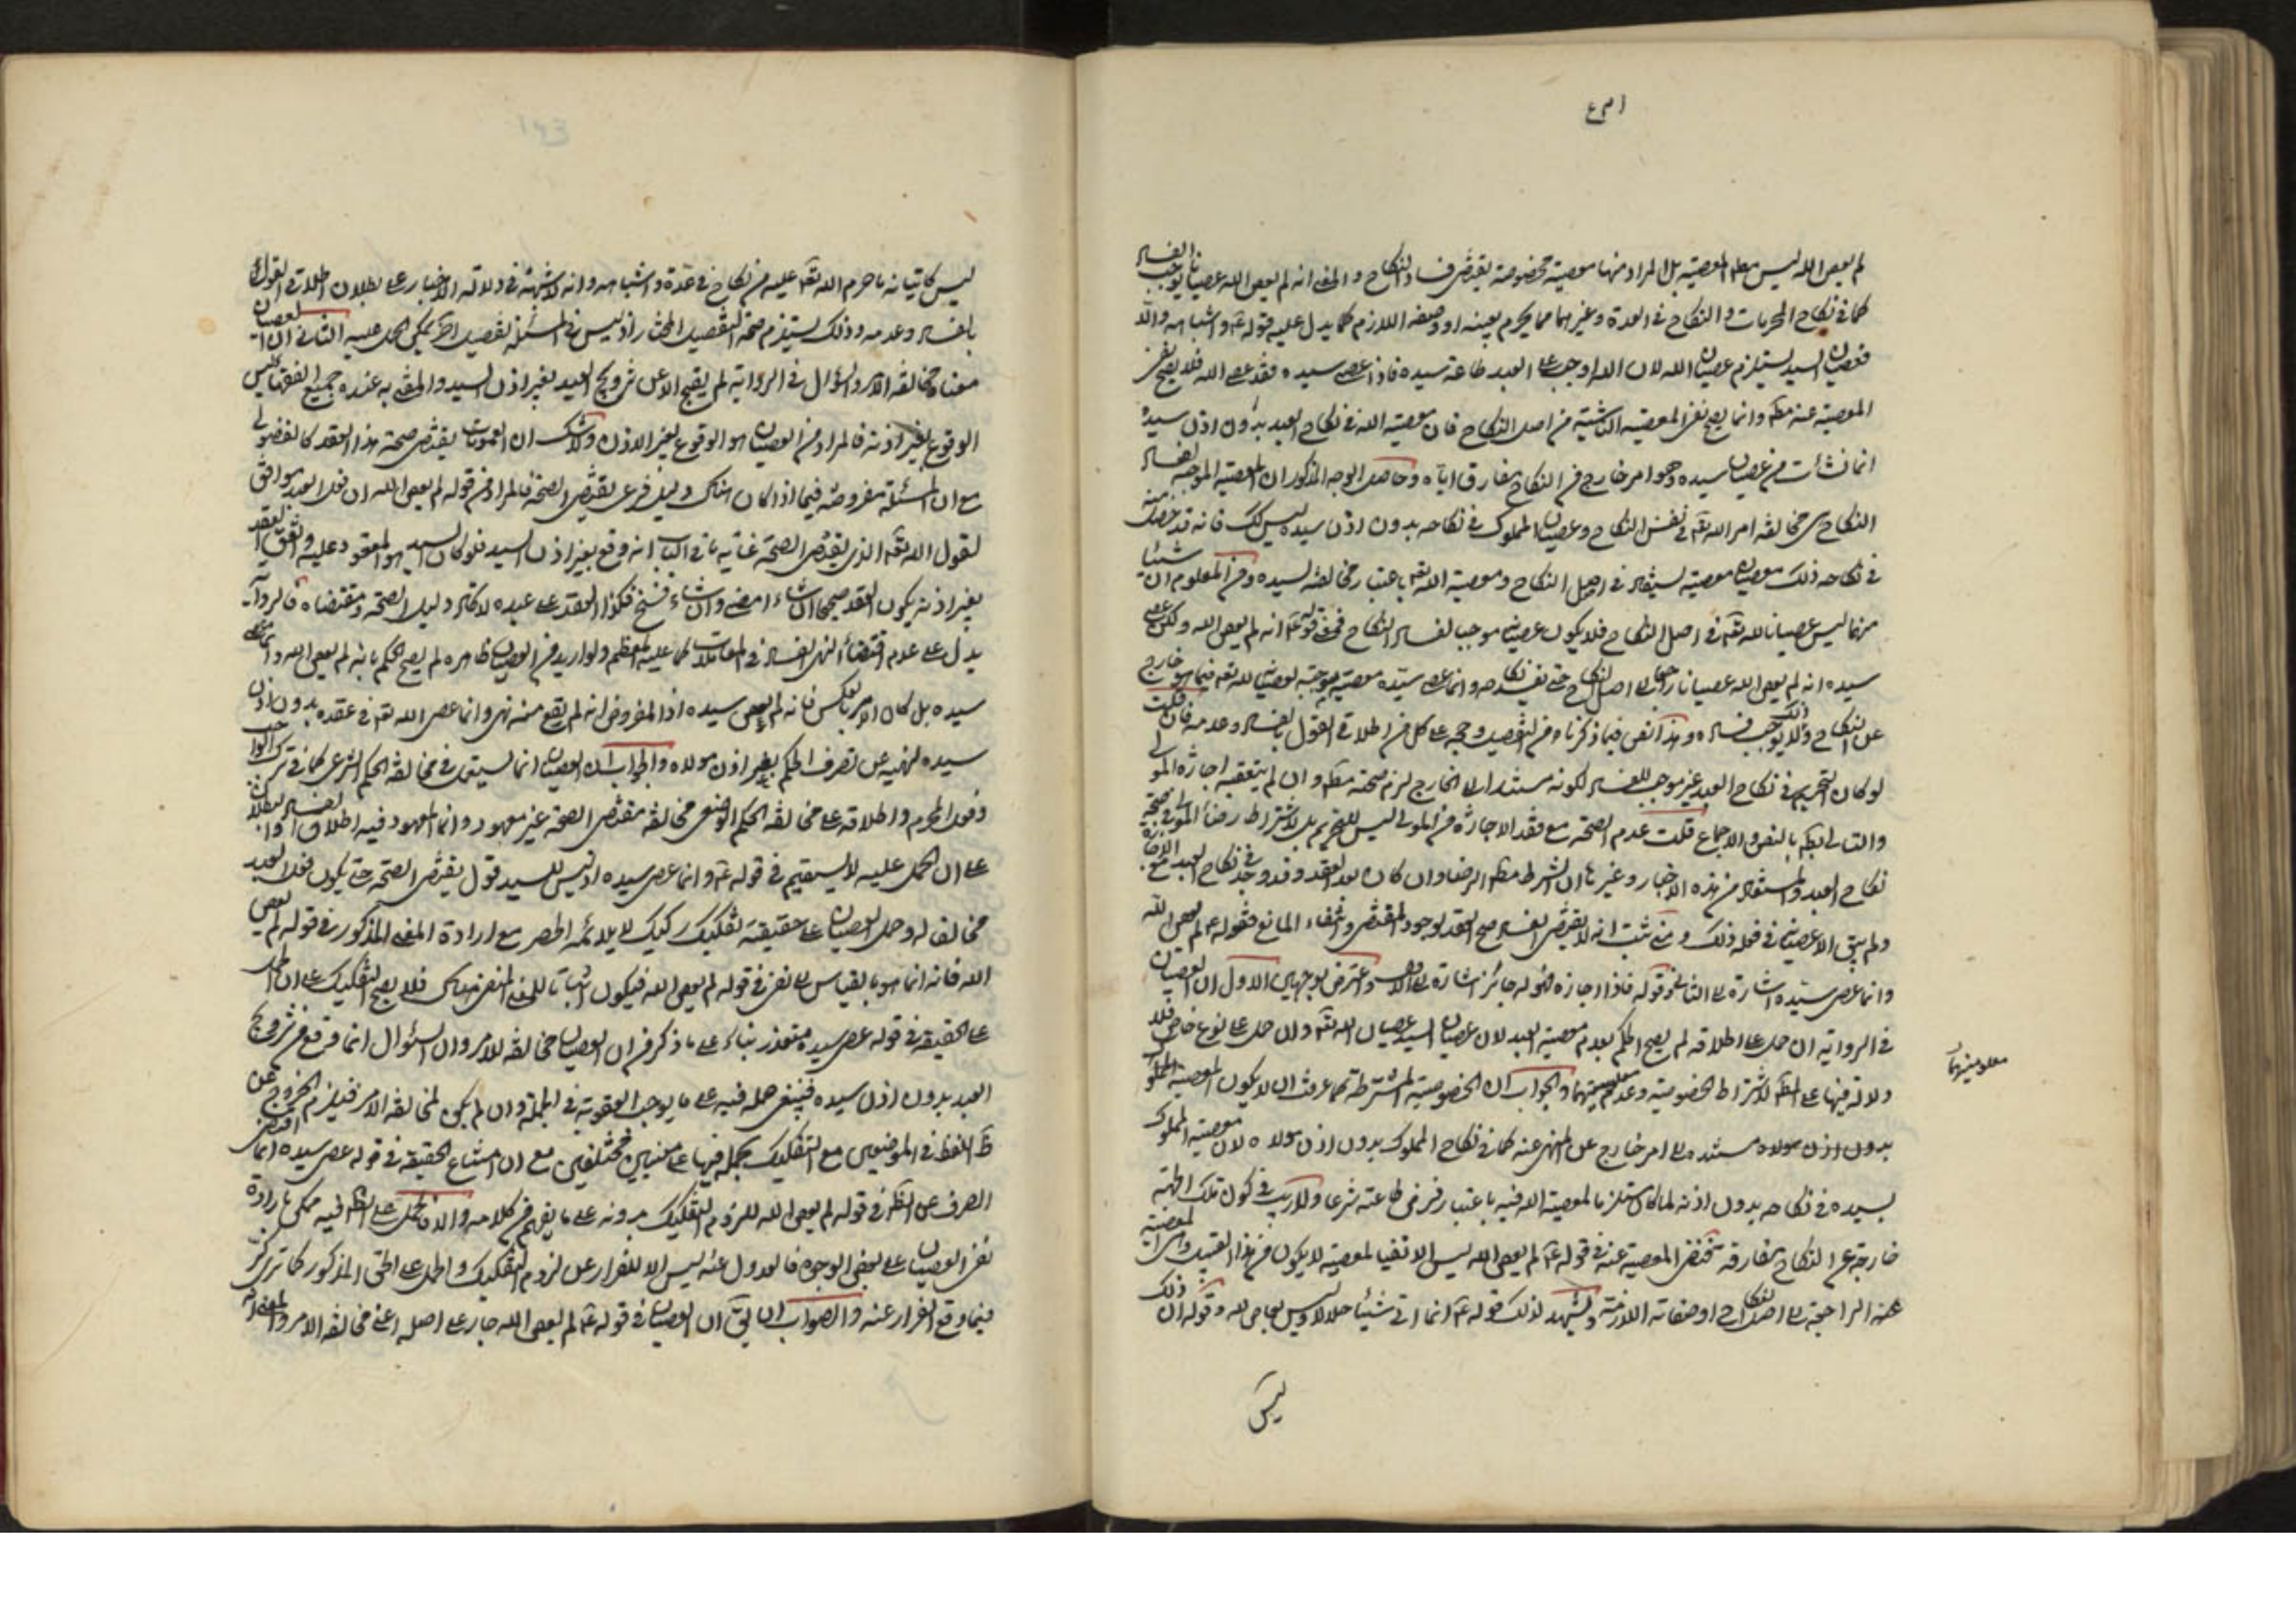 لم يعص الله ليس مطلق المعصية بل المراد منها معصية مخصوصة يقتضى فساد النكاح والمعنى انه لم يعص الله عصيانا يوجب الفساد
كما في نكاح المحرمات والنكاح في العدة وغيرهما مما يحرم بعينه او وصفه اللازم كما يدل عليه قوله ع واشباهه والا
فعصيان السيد يستلزم عصيان الله لان الله اوجب على العبد طاعة سيده فاذا عصى سيده فقد عصى الله فلا يصح نفى
المعصية عنه مط وانما يصح نفى المعصية الناشئة من اصل النكاح فان معصية الله في نكاح العبد بدون اذن سيده
انما نشأت من عصيان سيده وهو امر خارج من النكاح يفارق اياه وحاصل الوجه المذكور ان المعصية الموجبة لفساد
النكاح هى مخالفة امر الله تعه في نفس النكاح وعصيان المملوك في نكاحه بدون اذن سيده ليس كك فانه قد حصل منه
في نكاحه ذلك معصيتان معصية لسيده في اصل النكاح ومعصية الله تعه باعتبار مخالفة لسيده ومن المعلوم ان شيئا
منهما ليس عصيانا لله تعه في اصل النكاح فلا يكون عصيانه موجبا لفساد النكاح فمعنى قوله ع انه لم يعص الله ولكن عصى
سيده انه لم يعص الله عصيانا راجعا الى اصل النكاح حتى يفسد نكاحه وانما عصى سيده معصية موجبة لعصيان لله تعه فيما هو خارج
عن النكاح ولا يوجب ذلك فساده وهذا نص فيما ذكرناه من التفصيل وحجة على كل من اطلاق القول بالفساد وعدمه فان قلت
لو كان التحريم في نكاح العبد غير موجب للفساد لكونه مستندا الى الخارج لزم صحته مط وان لم يتعقبه اجازة المولى
والتالى بط بالنص والاجماع قلت عدم الصحة مع فقد الاجازة من المولى ليس للتحريم بل لاشتراط رضاء المولى في صحة
نكاح العبد والمستفاد من هذه الاخبار وغيرها ان الشرط مط الرضا وان كان بعد العقد وقد وجد في نكاح العبد مع الاجازة
ولم يبق الا عصيانه في فعله ذلك ومتى ثبت انه لا يقتضى الفساد صح العقد لوجود المقتضى وانتفاء المانع فقوله ع لم يعص الله
وانما عصى سيده اشارة الى الثانى وقوله فاذا اجازه فهو له جائز اشارة الى الاول واعترض بوجهين الاول ان العصيان
في الرواية ان حمل على اطلاقه لم يصح الحكم بعدم معصية العبد لان عصيان السيد عصيان الله تعه وان حمل على نوع خاص فلا
دلالة فيها على المط لاشتراط الخصوصية وعدم معلوميتها والجواب ان الخصوصية المشترطة كما عرفت ان لا يكون المعصية المملوك
بدون اذن مولاه مستندة الى امر خارج عن المنهى عنه كما في نكاح المملوك بدون اذن مولاه لان معصية المملوك
لسيده في نكاحه بدون اذنه لما كان مستلزما لمعصية الله فيه باعتبار فرض طاعته شرعا ولا ريب في كون تلك الجهة
خارجة عن النكاح مفارقة فنفى المعصية عنه في قوله ع لم يعص الله ليس الا نفيا لمعصية لا يكون من هذا القبيل وهى المعصية
عنه الراجعة الى اصل النكاح او صفاته اللازمة ويشهد لذلك قوله ع انما اتى شيئا حلالا وليس بعاص لله وقوله ان ذلك
ليس
معلوميتها
ليس كاتيانه ما حرم الله تعه عليه من نكاح في عدة واشباهه وانه لا شبهة في دلالة الاخبار على بطلان اطلاق القول
بالفساد وعدمه وذلك يستلزم صحة التفصيل المختار اذ ليس في المسئلة تفصيل اخر يمكن الحمل عليه الثانى ان العصيان
معناه مخالفة الامر والسؤال في الرواية لم يقع الا عن تزويج العبد بغير اذن السيد والمفتى به عنده جميع الفقهاء ليس
الوقوع بغير اذنه فالمراد من العصيان هو الوقوع بغير الاذن ولا شك ان العمومات يقتضى صحة هذا العقد كالفضولى
مع ان المسئلة مفروضة فيما اذا كان هناك دليل شرعى يقتضى الصحة فالمراد من قوله لم يعص الله ان فعل العبد موافق
لقول الله تعه الذى يقتضى الصحة غاية ما في الباب انه وقع بغير اذن السيد فلو كان السيد هو المعقود عليه واتفق العقد
بغير اذنه يكون العقد صحيحا ان شاء امضى وان شاء فسخ فكذا العقد على عبده لاتحاد دليل الصحة ومقتضاه فالرواية
يدل على عدم اقتضاء النهى الفساد في المعاملات كما عليه المعظم ولو اريد من العصيان ظاهره لم يصح الحكم بانه لم يعص الله وانما عصى
سيده بل كان الامر بالعكس فانه لم يعص سيده اذ المفروض انه لم يقع منه نهى وانما عصى الله تعه في عقده بدون اذن
سيده لنهيه عن تصرف الحكم بغير اذن مولاه والجواب ان العصيان انما يستعمل في مخالفة الحكم الشرعى كما في ترك الواجب
وفعل المحرم واطلاقه على مخالفة الحكم الوضعى مخالفة مقتضى الصحة غير معهود وانما المعهود فيه اطلاق الفساد والبطلان
على ان الحمل عليه لا يستقيم في قوله ع وانما عصى سيده اذ ليس للسيد قول يقتضى الصحة حتى يكون فعل العبد
مخالفا له وحمل العصيان على حقيقته تفكيك ركيك لا يلائمه الحصر مع ارادة المعنى المذكور في قوله لم يعص
الله فانه انما هو بالقياس الى نفى في قوله لم يعص الله فيكون اثباتا للمعنى المنفى هناك فلا يصح التفكيك على ان الحمل
على الحقيقة في قوله عصى سيده متعذر بناء على ما ذكر من ان العصيان مخالفة للامر وان السؤال انما وقع من تزويج
العبد بدون اذن سيده فينبغى حمله فيه على ما يوجب العقوبة في الجملة وان لم يكن لمخالفة الامر فيلزم الخروج عن
ظ اللفظ في الموضعين مع التفكيك بحمله فيها على معنيين مختلفين مع ان امتناع الحقيقة في قوله عصى سيده انما اقتضى
الصرف عن الظ في قوله لم يعص الله للزوم التفكيك بدونه على ما يفهم من كلامه والا فالحمل على الظ فيه ممكن بارادة
نفى العصيان على بعض الوجوه فالعدول عنه ليس الا للفرار عن لزوم التفكيك والحمل على المعنى المذكور كما ترى كر
فيما وقع الفرار عنه والصواب ان يق ان العصيان في قوله ع لم يعص الله جار على اصله اعنى مخالفة الامر والمعنى انه